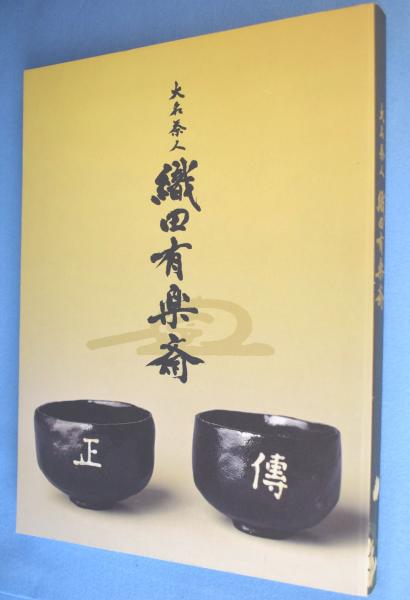 大名茶人
織田有楽斎
正
傳
大名茶人 織田有楽斎